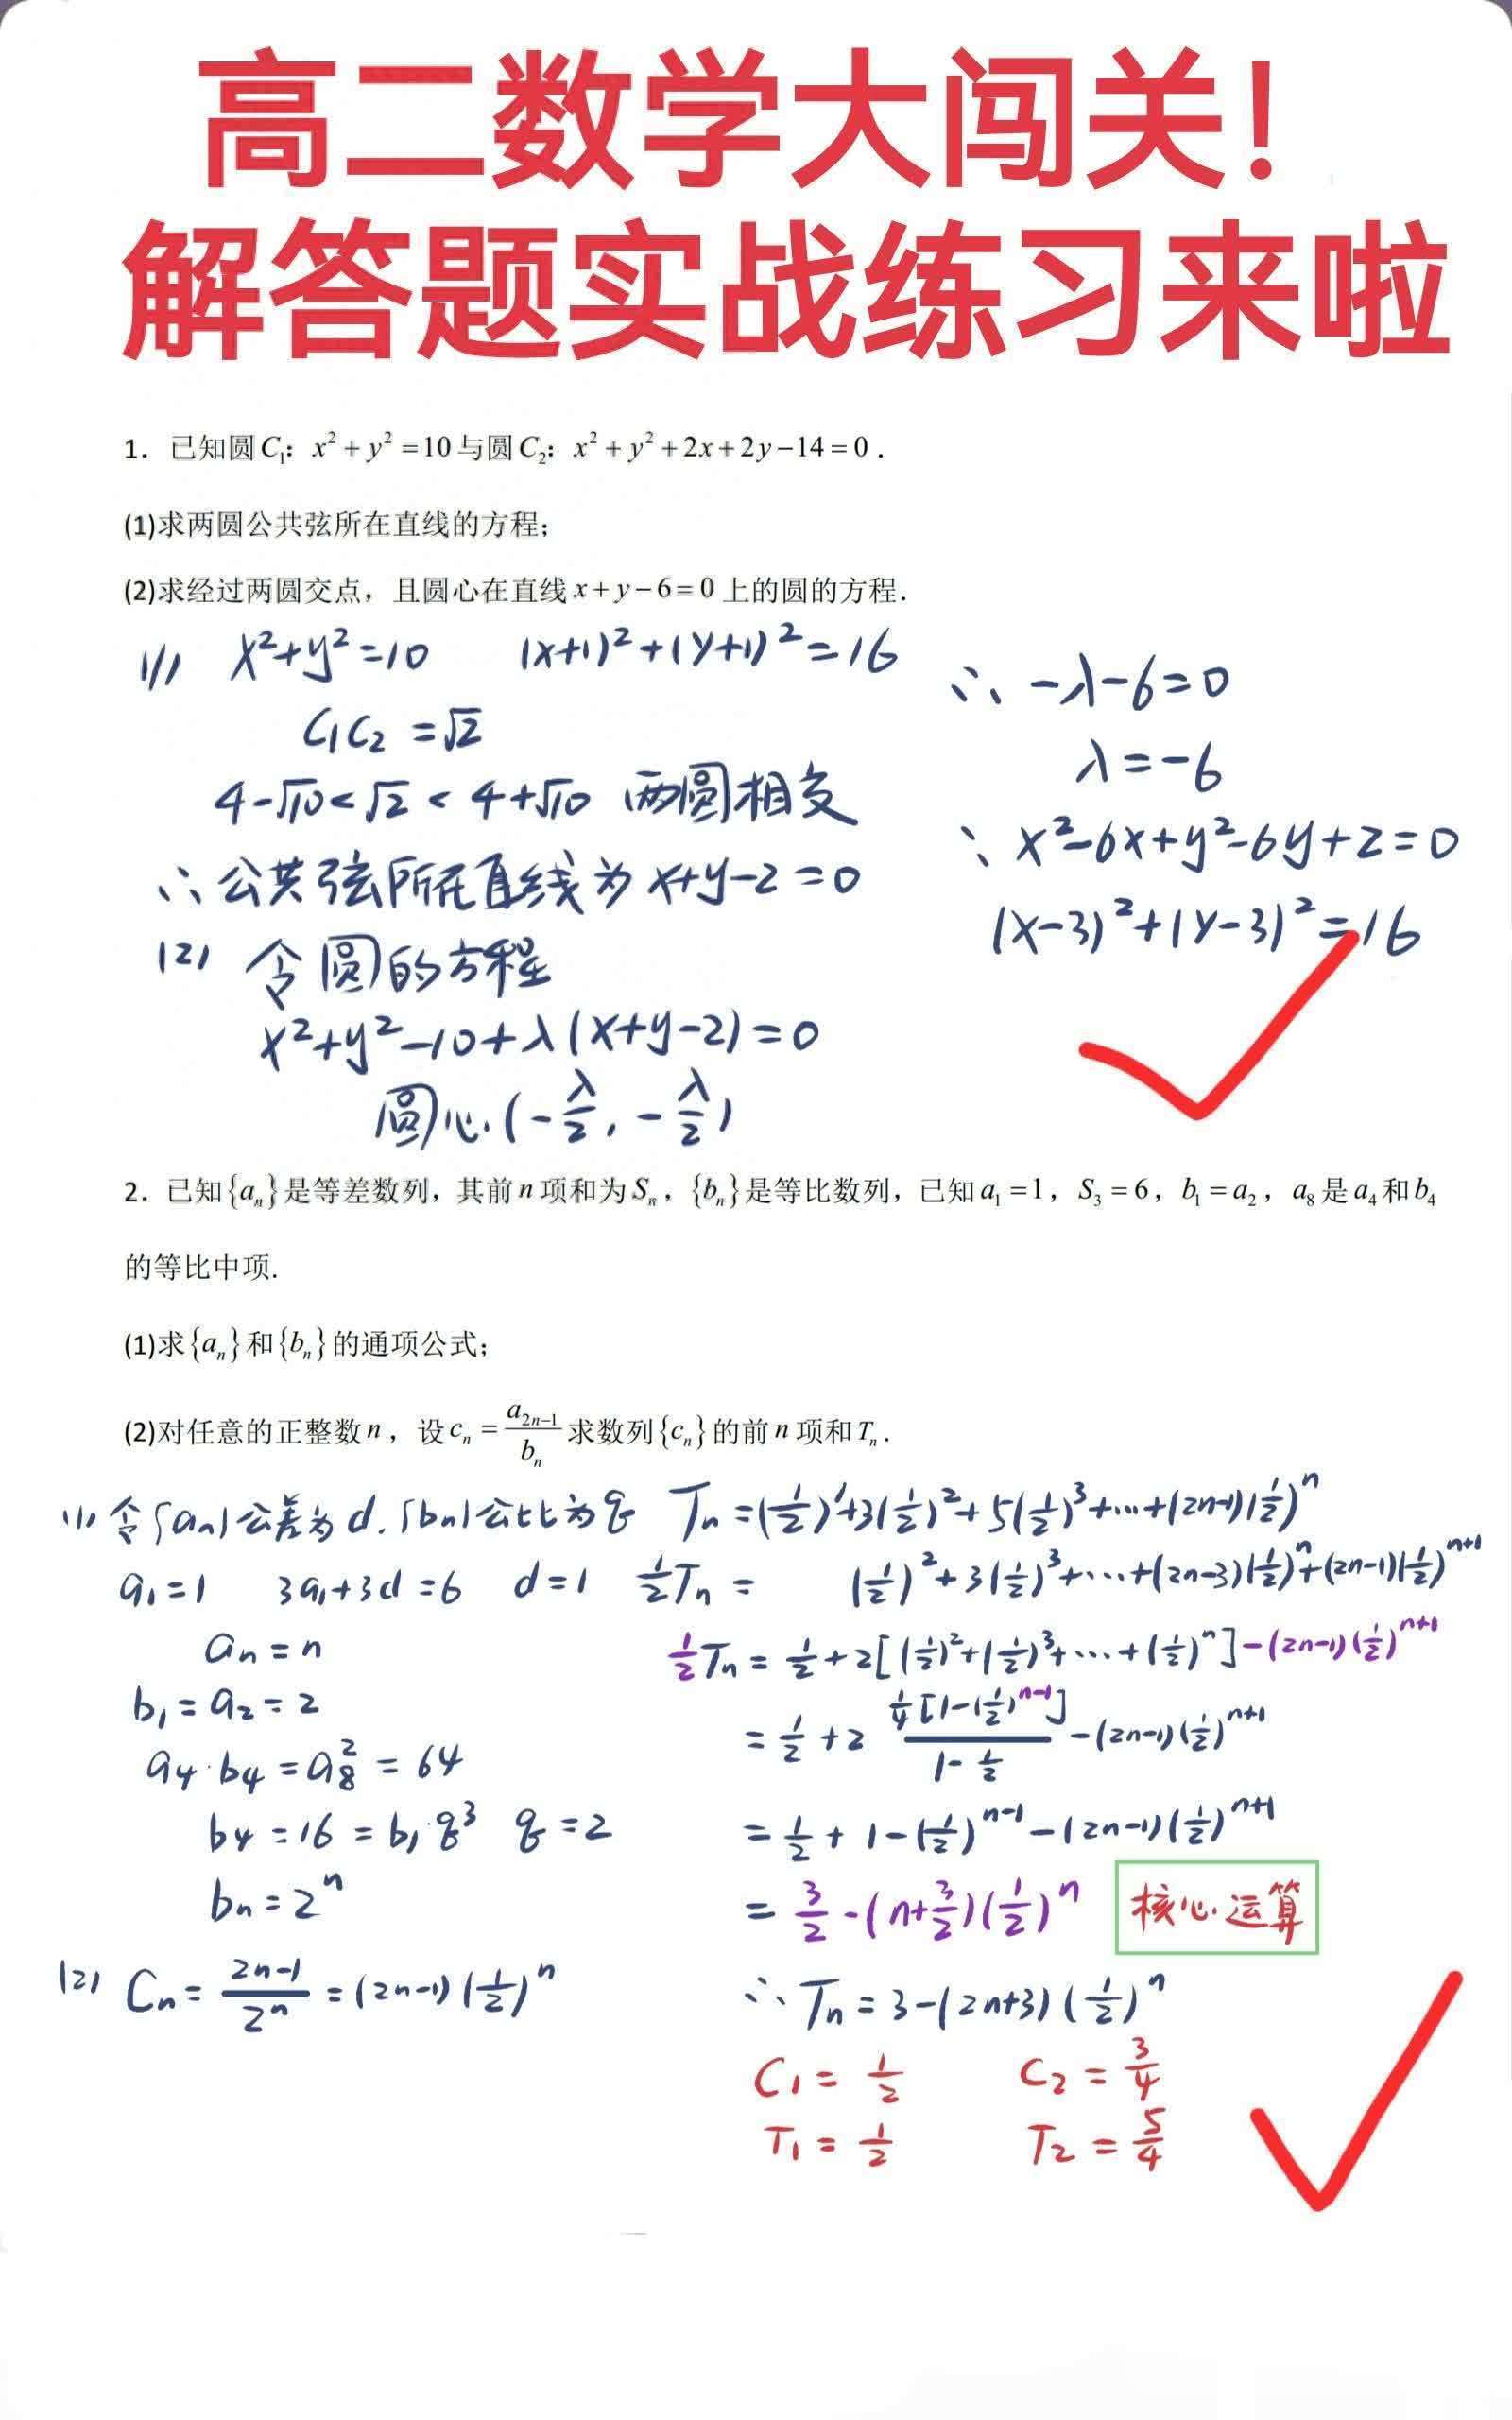 高二数学大闯关！
解答题实战练习来啦
1．已知圆C₁：x²+y²=10与圆C₂：x²+y²+2x+2y−14=0．
(1)求两圆公共弦所在直线的方程；
(2)求经过两圆交点，且圆心在直线x+y−6=0上的圆的方程．
(1) x²+y²=10 (x+1)²+(y+1)²=16
C₁C₂=√2
4-√10<√2<4+√10 两圆相交
∴公共弦所在直线为x+y-2=0
(2) 令圆的方程
x²+y²-10+λ(x+y-2)=0
圆心(-λ/2, -λ/2)
∴ -λ-6=0
λ=-6
∴ x²-6x+y²-6y+2=0
(x-3)²+(y-3)²=16
2．已知{aₙ}是等差数列，其前n项和为Sₙ，{bₙ}是等比数列，已知a₁=1，S₃=6，b₁=a₂，a₈是a₄和b₄
的等比中项.
(1)求{aₙ}和{bₙ}的通项公式；
(2)对任意的正整数n，设cₙ=a₂ₙ₋₁/bₙ求数列{cₙ}的前n项和Tₙ．
(1)令{aₙ}公差为d.{bₙ}公比为q
a₁=1 3a₁+3d=6 d=1
aₙ=n
b₁=a₂=2
a₄·b₄=a₈²=64
b₄=16=b₁·q³ q=2
bₙ=2ⁿ
(2) Cₙ=(2n-1)/2ⁿ=(2n-1)(1/2)ⁿ
Tₙ=(1/2)¹+3(1/2)²+5(1/2)³+…+(2n-1)(1/2)ⁿ
1/2Tₙ= (1/2)²+3(1/2)³+…+(2n-3)(1/2)ⁿ+(2n-1)(1/2)ⁿ⁺¹
1/2Tₙ=1/2+2[(1/2)²+(1/2)³+…+(1/2)ⁿ]-(2n-1)(1/2)ⁿ⁺¹
=1/2+2 1/4[1-(1/2)ⁿ⁻¹]/(1-1/2)-(2n-1)(1/2)ⁿ⁺¹
=1/2+1-(1/2)ⁿ⁻¹-(2n-1)(1/2)ⁿ⁺¹
=3/2-(n+3/2)(1/2)ⁿ 核心运算
∴Tₙ=3-(2n+3)(1/2)ⁿ
C₁=1/2 C₂=3/4
T₁=1/2 T₂=5/4